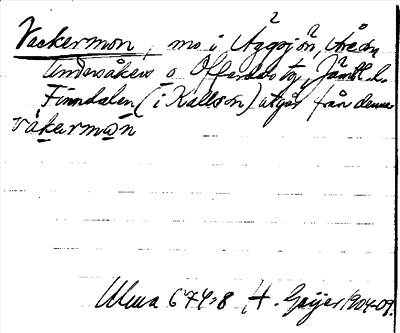 Vackermon, mo i Äggsjön, Åreån
Undersåkers o Offerdals tg, Jämtl. l.
Finndalen (i Kallsön) utgår från denna
våkermon
Ulma 674:8 H. Geijer 1904-09.